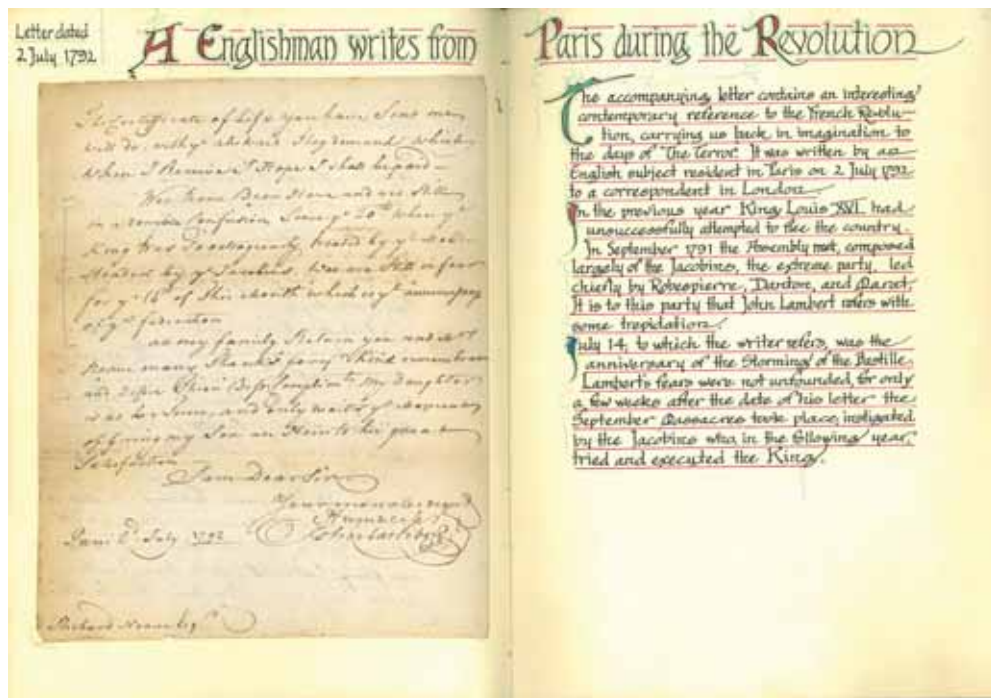 Letter dated
2 July 1792
A Englishman writes from Paris during the Revolution
The Certificate of Life you have Sent me
will do,
When I Receive it I Hope I shall be paid
We have Been Here and are Still
in a Confusion Since ye 20th when ye
King Was
by ye Jacobins, We are Still in fear
for ye 14th of this Month which is ye anniversary
of ye federation
my family Return you
many Thanks for your Kind remembrance
and Best Compliments My Daughter
and only waits ye
of giving my Son an Heir to his great
Satisfaction
I am Dear Sir
Your most obliged
Paris 2d July 1792
Richard Esqr
The accompanying letter contains an interesting
contemporary reference to the French Revolu-
tion, carrying us back in imagination to
the days of "The Terror". It was written by an
English subject resident in Paris on 2 July 1792
to a correspondent in London.
In the previous year King Louis XVI had
unsuccessfully attempted to flee the country.
In September 1791 the Assembly met, composed
largely of the Jacobins, the extreme party, led
chiefly by Robespierre, Danton, and Marat.
It is to this party that John Lambert refers with
some trepidation.
July 14, to which the writer refers, was the
anniversary of the Storming of the Bastille.
Lambert's fears were not unfounded, for only
a few weeks after the date of his letter the
September Massacres took place, instigated
by the Jacobins who, in the following year,
tried and executed the King.